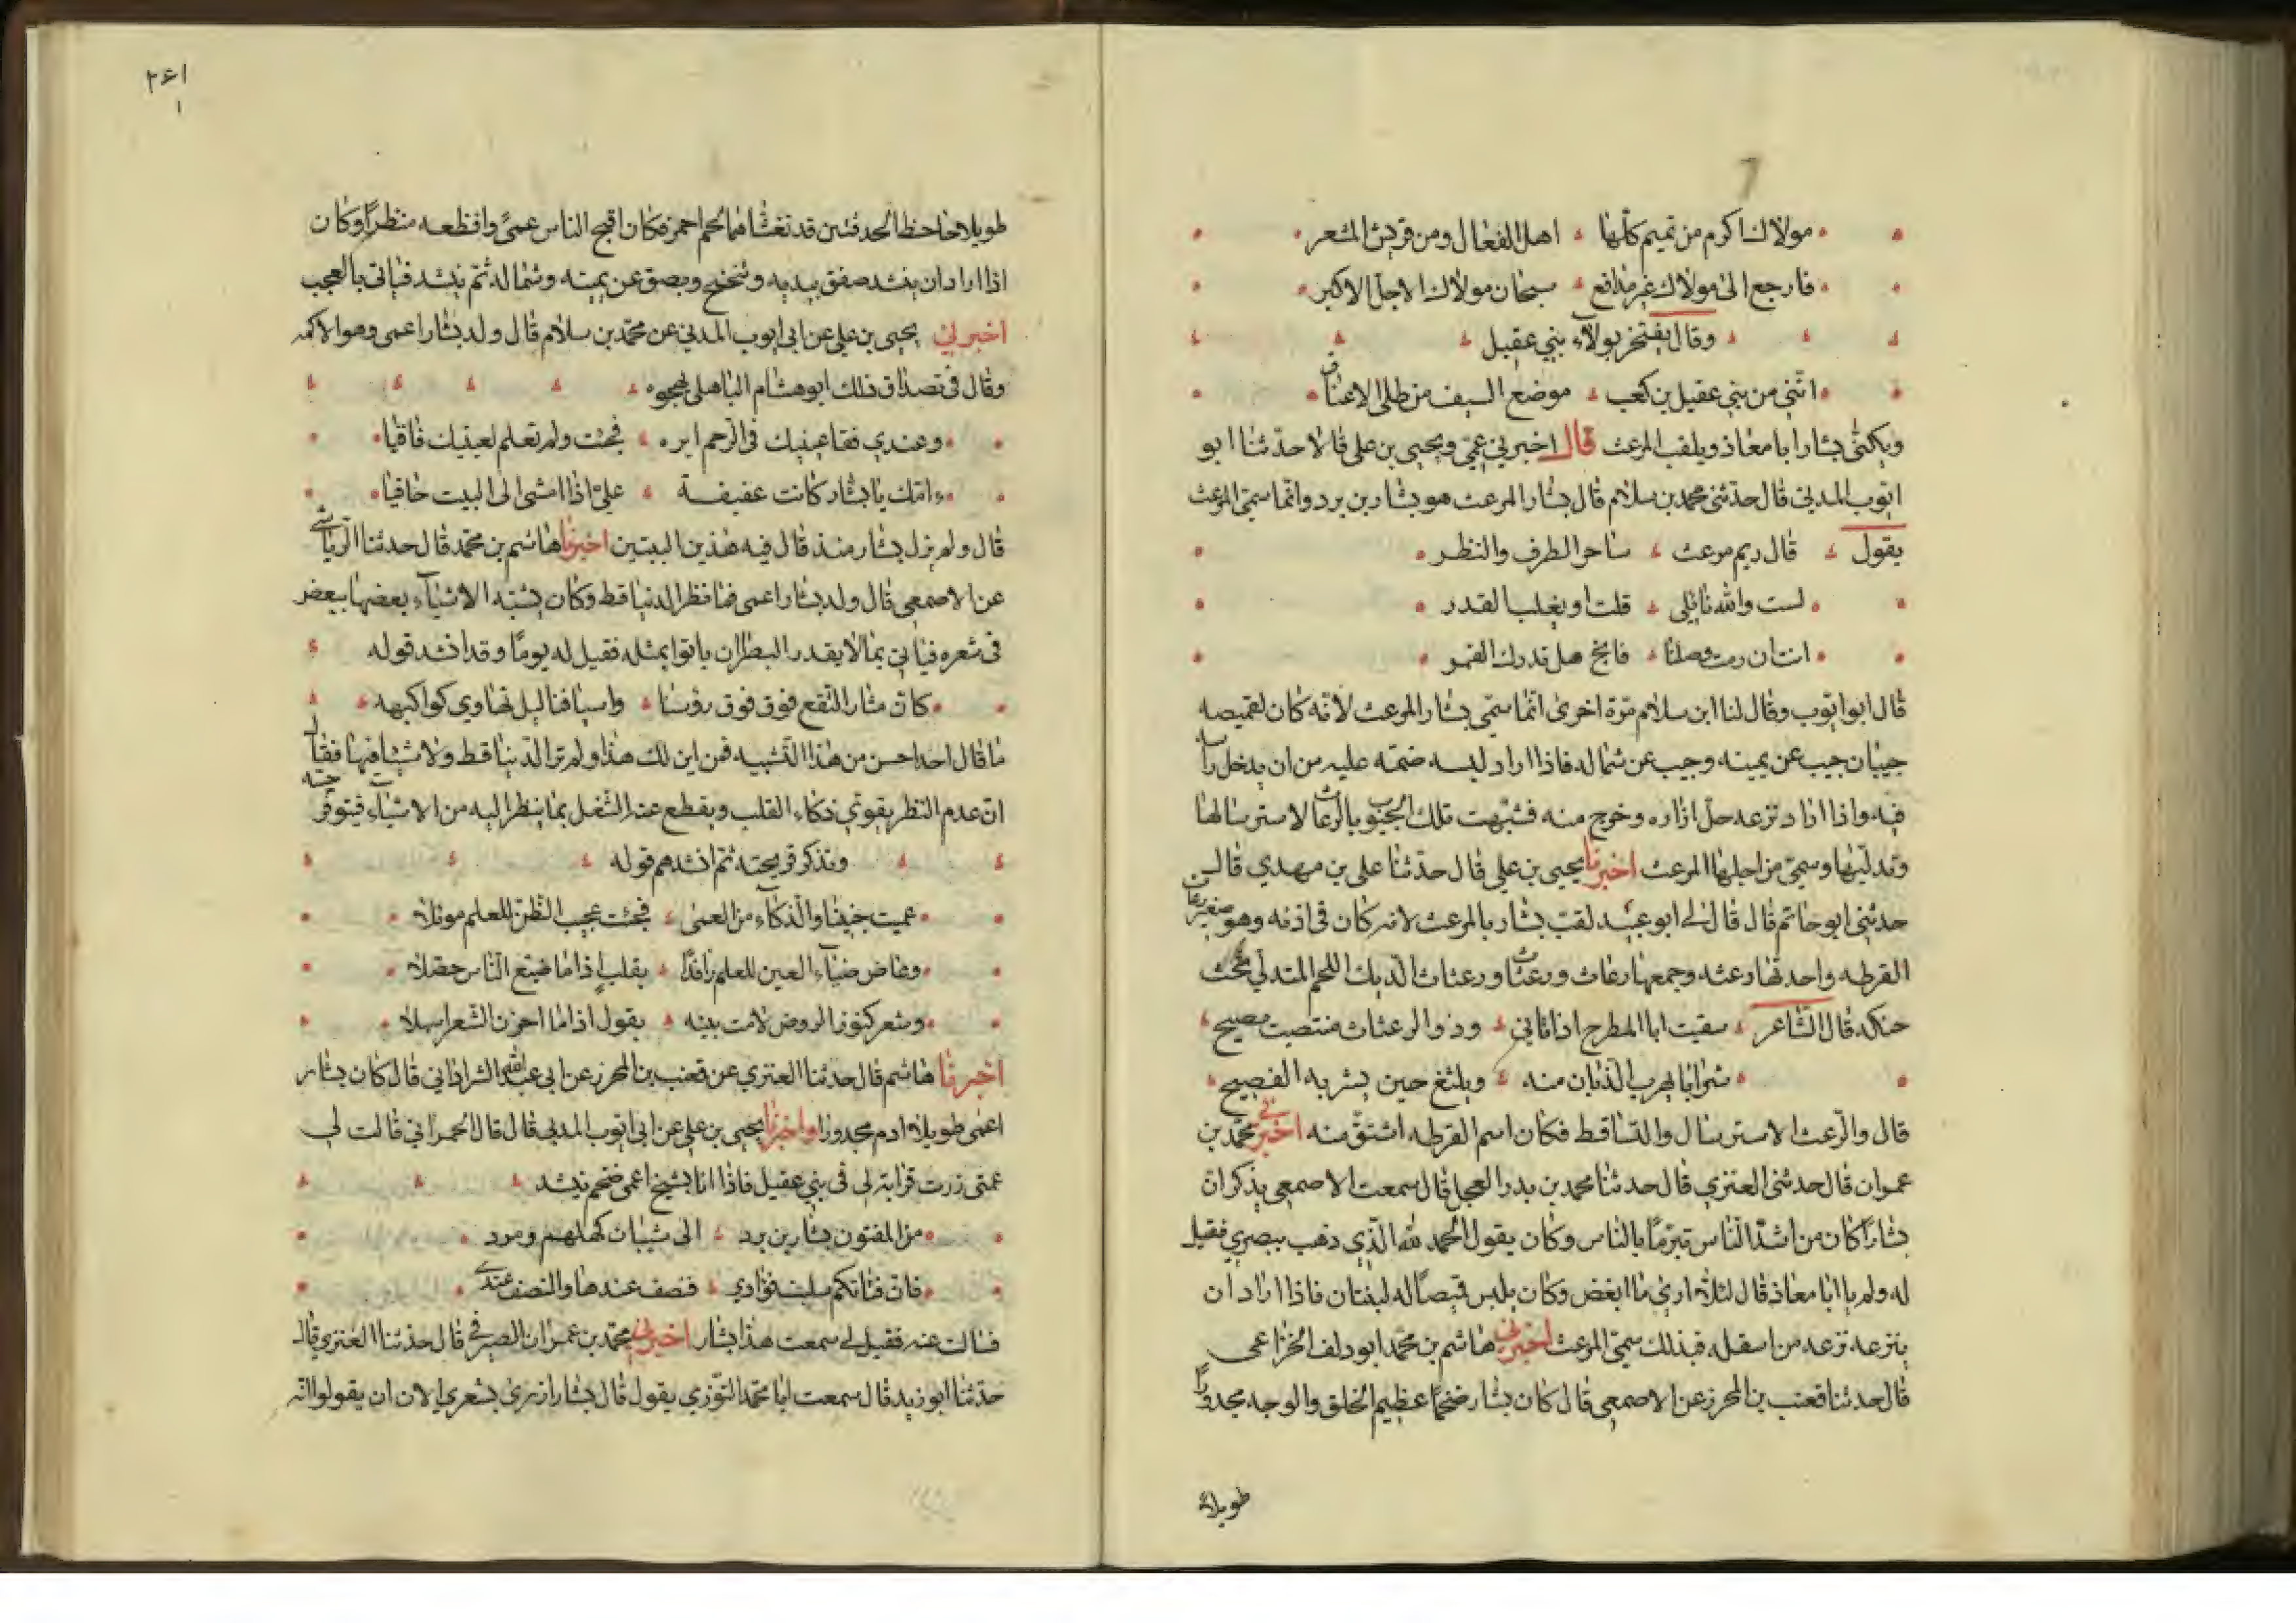 مولاك اكرم من تميم كلها اهل الفعال ومن قريش المشعر
فارجع الى مولاك غير مدافع سبحان مولاك الاجل الاكبر
وقال يفتخر بولاء بني عقيل
انني من بني عقيل بن كعب موضع السيف من طلى الاعناق
ويكنى بشار ابا معاذ ويلقب المرعث قال اخبرني عمي ويحيى بن علي قالا حدثنا ابو
ايوب المدني قال حدثني محمد بن سلام قال بشار المرعث هو بشار بن برد وانما سمي المرعث
يقول قال ريم مرعث ساحر الطرف والنظر
لست والله نائلي قلت او يغلب القدر
انت ان رمت وصلنا فانج هل تدرك القمر
قال ابو ايوب وقال لنا ابن سلام مرة اخرى انما سمي بشار المرعث لانه كان لقميصه
جيبان جيب عن يمينه وجيب عن شماله فاذا اراد لبسه ضمه عليه من ان يدخل راسه
فيه واذا اراد نزعه حل ازاره وخرج منه فشبهت تلك الجيوب بالرعاث لاسترسالها
وتدليها وسمي من اجلها المرعث اخبرنا يحيى بن علي قال حدثنا علي بن مهدي قال
حدثني ابو حاتم قال قال لي ابو عبيد لقب بشار بالمرعث لانه كان في اذنه وهو صغير رعاث
القرطه واحدتها رعثه وجمعها رعاث ورعثات ورعثات الديك اللحم المتدلي تحت
حنكه قال الشاعر سقيت ابا المطرح اذ اتاني وذو الرعثات منتصب يصيح
شرابا يهرب الذبان منه ويلثغ حين يشربه الفصيح
قال والرعث الاسترسال والتساقط فكان اسم القرطه اشتق منه اخبرني محمد بن
عمران قال حدثني العنزي قال حدثنا محمد بن بدر العجلي قال سمعت الاصمعي يذكر ان
بشارا كان من اشد الناس تبرما بالناس وكان يقول الحمد لله الذي ذهب ببصري فقيل
له ولم يا ابا معاذ قال لئلا ارى ما ابغض وكان يلبس قميصا له لبنتان فاذا اراد ان
ينزعه نزعه من اسفله فبذلك سمي المرعث اخبرني هاشم بن محمد ابو دلف الخزاعي
قال حدثنا قعنب بن المحرز عن الاصمعي قال كان بشار ضخما عظيم الخلق والوجه مجدورا
طويلا
٢٤١
١
طويلا جاحظ الحدقتين قد تغشاهما لحم احمر فكان اقبح الناس عمى وافظعه منظرا وكان
اذا اراد ان ينشد صفق بيديه وتنحنح وبصق عن يمينه وشماله ثم ينشد فياتي بالعجب
اخبرني يحيى بن علي عن ابي ايوب المدني عن محمد بن سلام قال ولد بشار اعمى وهو الاكمه
وقال في تصداق ذلك ابو هشام الباهلي يهجوه
وعندي فقا عينيك في الرحم ايره فجئت ولم تعلم لعينيك فاقيا
ءامك يا بشار كانت عفيفة علي اذا امشى الى البيت حافيا
قال ولم يزل بشار منذ قال فيه هذين البيتين اخبرنا هاشم بن محمد قال حدثنا الرياشي
عن الاصمعي قال ولد بشار اعمى فما نظر الدنيا قط وكان يشبه الاشياء بعضها ببعض
في شعره فياتي بما لا يقدر البصراء ان ياتوا بمثله فقيل له يوما وقد انشد قوله
كان مثار النقع فوق فوق رؤسنا واسيافنا ليل تهاوى كواكبه
ما قال احد احسن من هذا التشبيه فمن اين لك هذا ولم تر الدنيا قط ولا شيئا فيها فقال
ان عدم النظر يقوي ذكاء القلب ويقطع عنه الشغل بما ينظر اليه من الاشياء فيتوفر حسه
وتذكو قريحته ثم انشدهم قوله
عميت جنينا والذكاء من العمى فجئت عجيب الظن للعلم موئلا
وغاض ضياء العين للعلم رافدا بقلب اذا ما ضيع الناس حصلا
وشعر كنور الروض لامت بينه بقول اذا ما احزن الشعر اسهلا
اخبرنا هاشم قال حدثنا العنزي عن قعنب بن المحرز عن ابي عبد الله الشرادني قال كان بشار
اعمى طويلا ادم مجدورا واخبرنا يحيى بن علي عن ابي ايوب المدني قال قال الحمراني قالت لي
عمتي زرت قرابة لي في بني عقيل فاذا انا بشيخ اعمى ضخم ينشد
من المفتون بشار بن برد الى شيبان كهلهم ومرد
فان فتاتكم سلبت فؤادي فنصف عندها والنصف عندي
فسالت عنه فقيل لي سمعت هذا بشار اخبرني محمد بن عمران الصيرفي قال حدثنا العنزي قال
حدثنا ابو زيد قال سمعت ابا محمد التوزي يقول قال بشار ازرى بشعري الاذان يقولوا انه